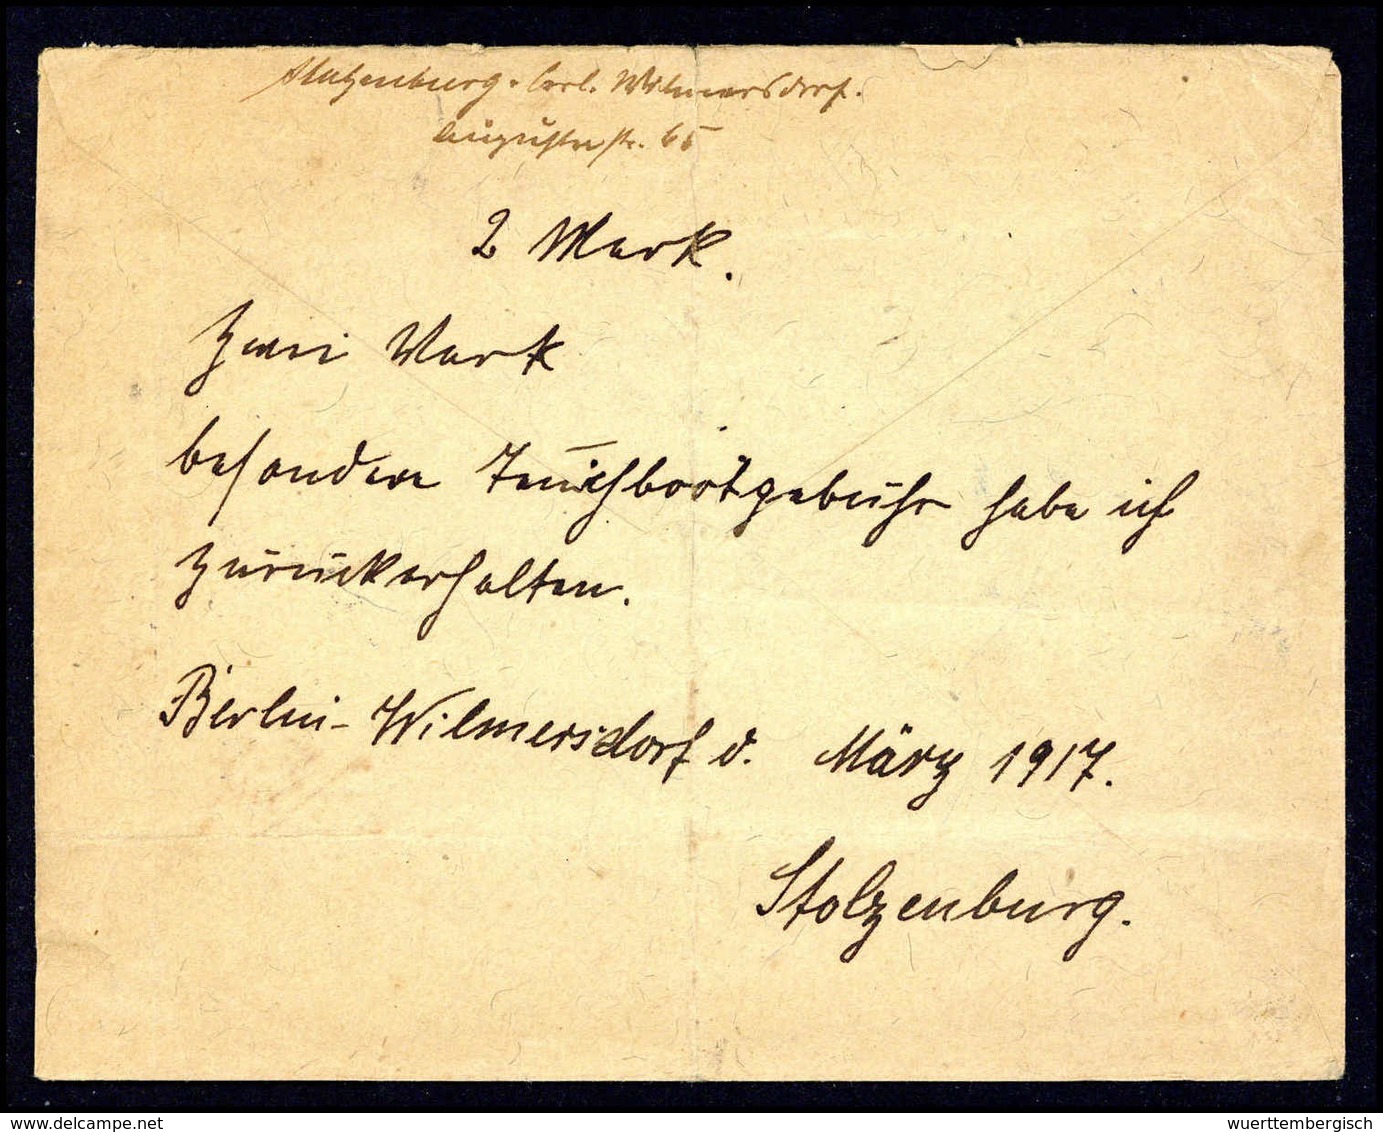 Stolzenburg - Berl. Wilmersdorf.
Augustastr. 65
2 Mark.
Zwei Mark
besondere Tauchbootgebühr habe ich
zurückerhalten.
Berlin-Wilmersdorf d. März 1917.
Stolzenburg.
www.delcampe.net
wuerttembergisch